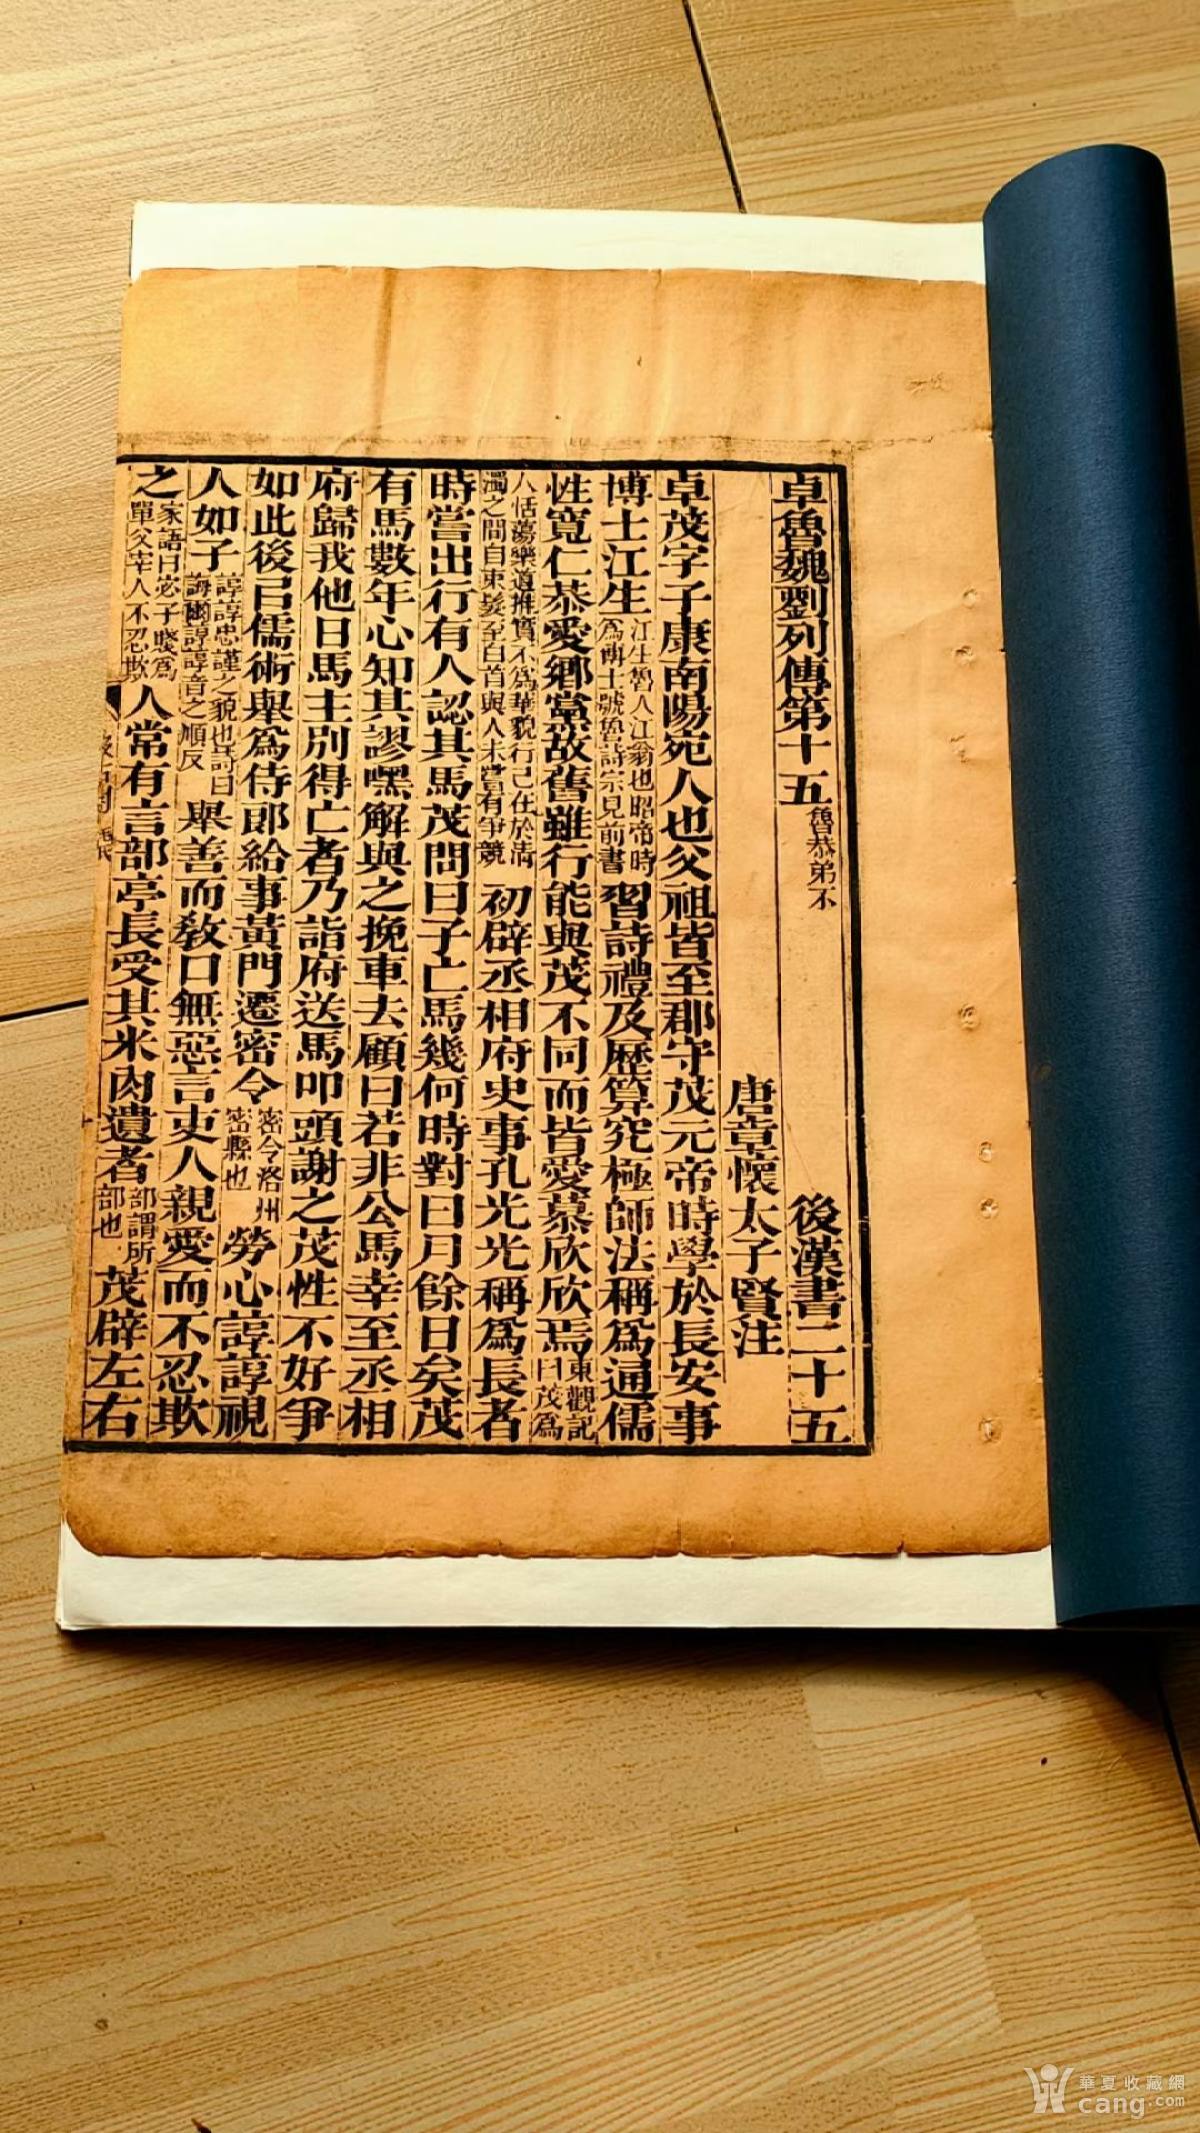 卓魯魏劉列傳第十五 魯恭弟丕 後漢書二十五
唐章懷太子賢注
卓茂字子康南陽宛人也父祖皆至郡守茂元帝時學於長安事
博士江生江生魯人江翁也昭帝時爲博士號魯詩宗見前書習詩禮及歷算究極師法稱爲通儒
性寬仁恭愛鄉黨故舊雖行能與茂不同而皆愛慕欣欣焉東觀記曰茂爲
人恬蕩樂道推實不爲華貌行己在於清濁之間自束髮至白首與人未嘗有爭競初辟丞相府史事孔光光稱爲長者
時嘗出行有人認其馬茂問曰子亡馬幾何時對曰月餘日矣茂
有馬數年心知其謬嘿解與之挽車去顧曰若非公馬幸至丞相
府歸我他日馬主別得亡者乃詣府送馬叩頭謝之茂性不好爭
如此後㠯儒術舉爲侍郎給事黃門遷密令密令洛州密縣也勞心諄諄視
人如子諄諄忠謹之貌也詩曰誨爾諄諄音之順反舉善而敎口無惡言吏人親愛而不忍欺
之家語曰宓子賤爲單父宰人不忍欺人常有言部亭長受其米肉遺者部謂所部也茂辟左右
華夏收藏網
cang.com